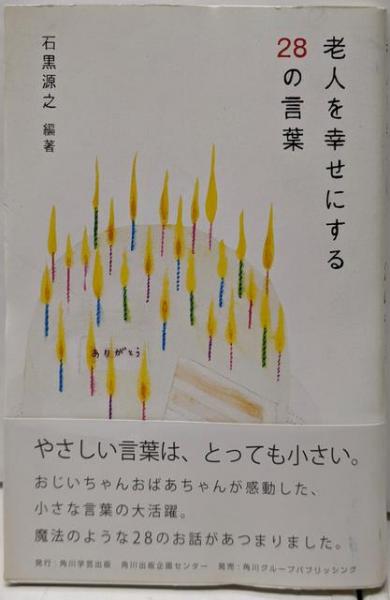 老人を幸せにする
28の言葉
石黒源之 編著
ありがとう
やさしい言葉は、とっても小さい。
おじいちゃんおばあちゃんが感動した、
小さな言葉の大活躍。
魔法のような28のお話があつまりました。
発行：角川学芸出版 角川出版企画センター 発売：角川グループパブリッシング